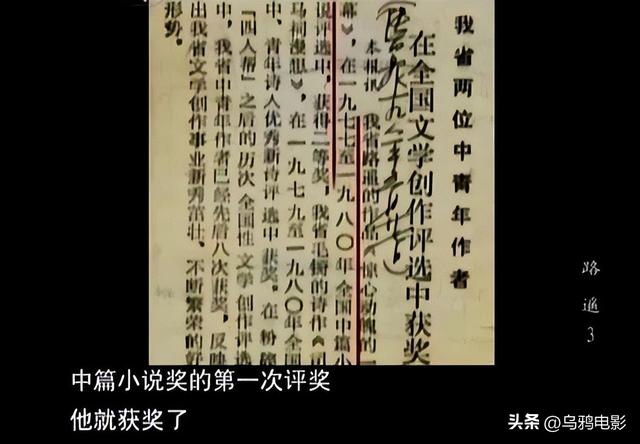 我省两位中青年作者
在全国文学创作评选中获奖
本报讯 我省路遥的作品《惊心动魄的一
幕》，在一九七七至一九八〇年全国中篇小
说评选中，获得二等奖，我省毛锜的诗作《司
马祠漫想》，在一九七九至一九八〇年全国
中、青年诗人优秀新诗评选中获奖。在粉碎
“四人帮”之后的历次全国性文学创作评选
中，我省中青年作者已经先后八次获奖，反映
出我省文学创作事业新秀茁壮、不断繁荣的好
形势。
路遥3
中篇小说奖的第一次评奖
他就获奖了
头条 @乌鸦电影